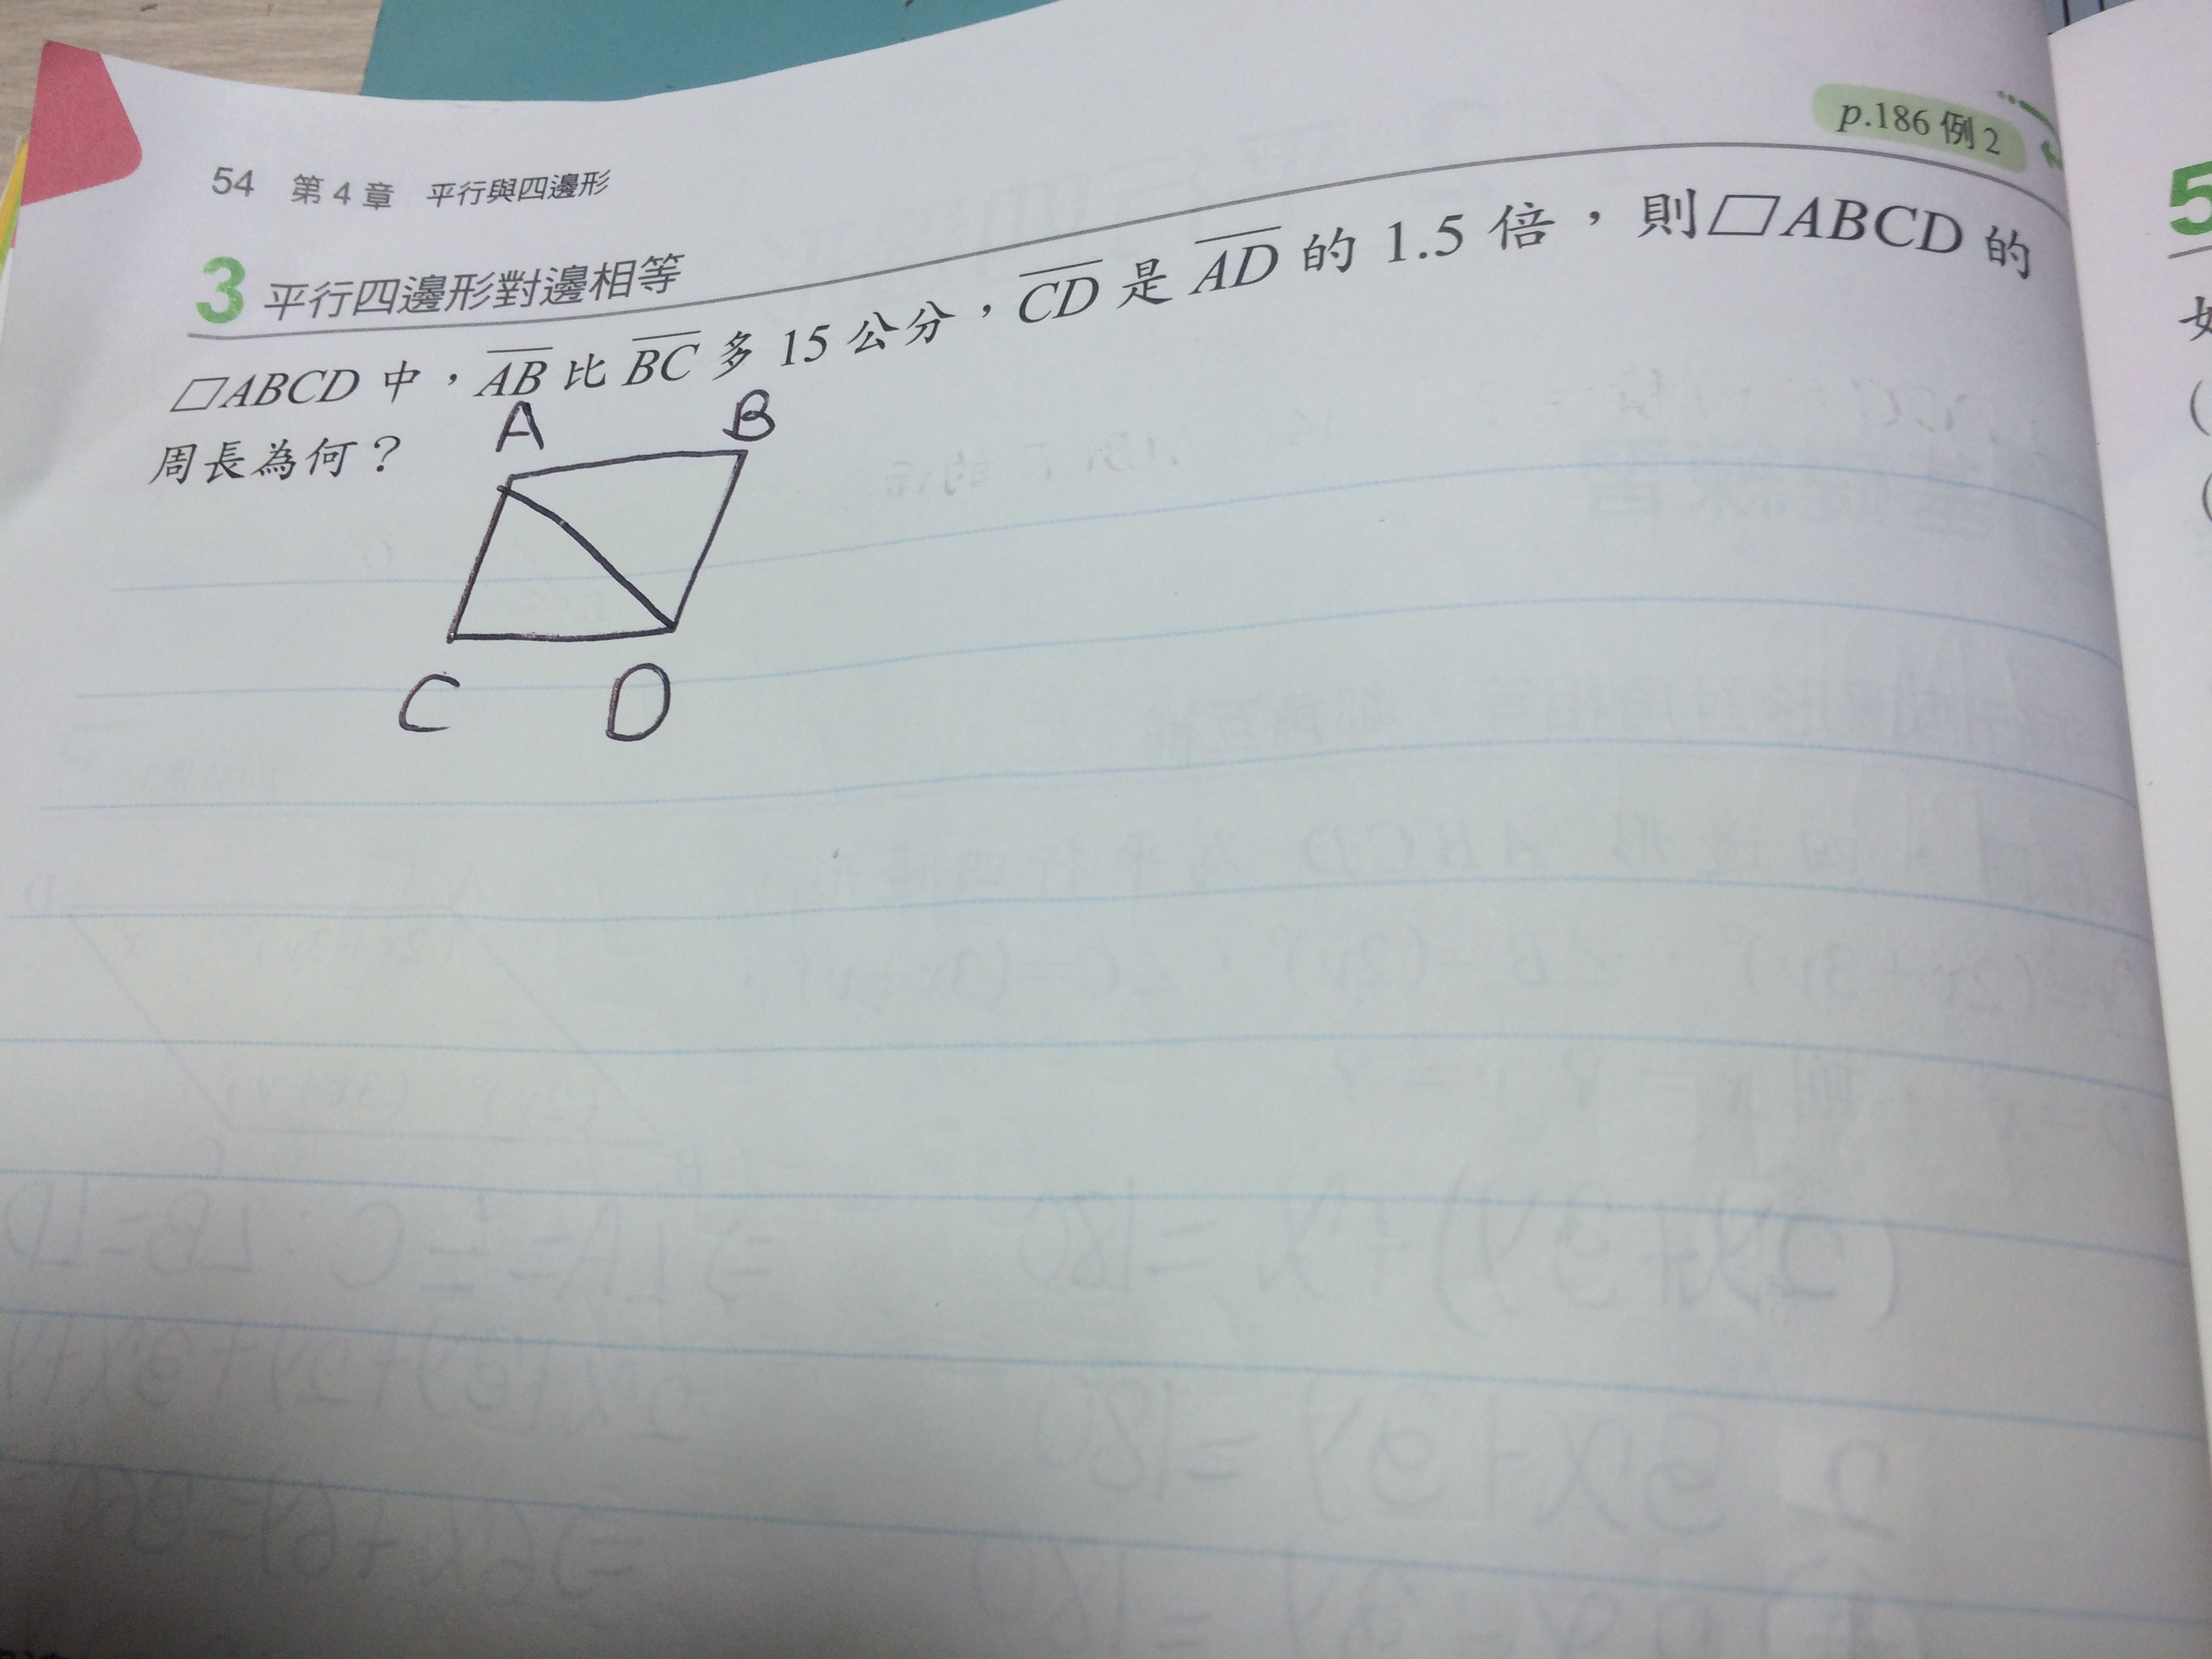 p.186 例2
54 第4章 平行與四邊形
3 平行四邊形對邊相等
▱ABCD 中，AB 比 BC 多 15 公分，CD 是 AD 的 1.5 倍，則▱ABCD 的
周長為何？
A B
C D
5